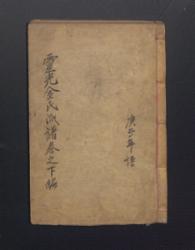 靈光金氏派譜卷之下編
庚子年譜